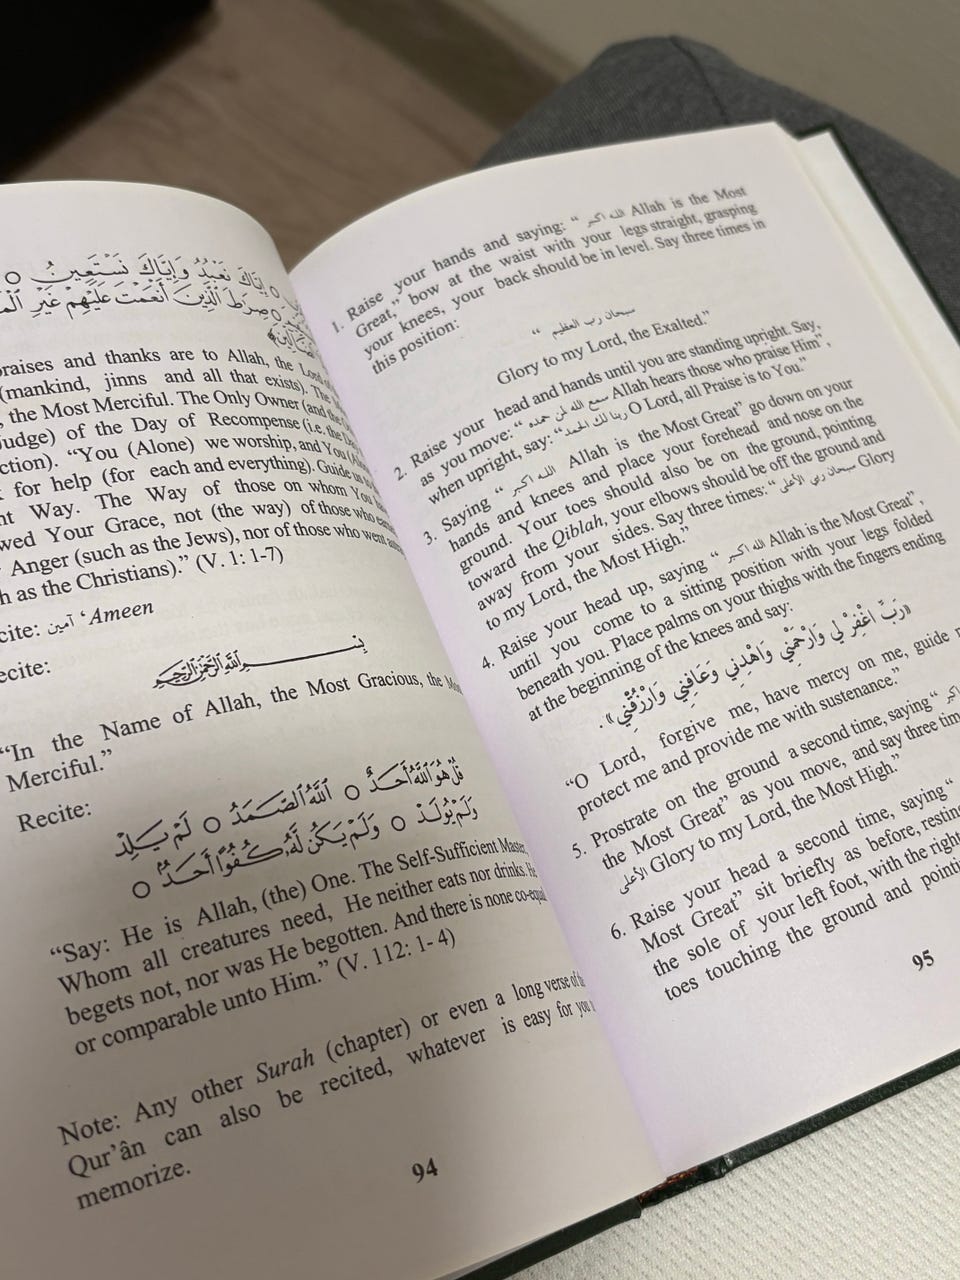 إِيَّاكَ نَعْبُدُ وَإِيَّاكَ نَسْتَعِينُ ○
صِرَٰطَ ٱلَّذِينَ أَنْعَمْتَ عَلَيْهِمْ غَيْرِ
praises and thanks are to Allah, the Lord of
(mankind, jinns and all that exists). The
, the Most Merciful. The Only Owner (and the
Judge) of the Day of Recompense (i.e. the
ction). “You (Alone) we worship, and You
for help (for each and everything). Guide us
Way. The Way of those on whom You
wed Your Grace, not (the way) of those who
Anger (such as the Jews), nor of those who went
h as the Christians).” (V. 1: 1-7)
cite: آمين ‘Ameen
ecite:
بِسْمِ ٱللَّهِ ٱلرَّحْمَٰنِ ٱلرَّحِيمِ
“In the Name of Allah, the Most Gracious, the Most
Merciful.”
Recite:
قُلْ هُوَ ٱللَّهُ أَحَدٌ ○ ٱللَّهُ ٱلصَّمَدُ ○ لَمْ يَلِدْ
وَلَمْ يُولَدْ ○ وَلَمْ يَكُن لَّهُۥ كُفُوًا أَحَدٌۢ ○
“Say: He is Allah, (the) One. The Self-Sufficient Master,
Whom all creatures need, He neither eats nor drinks. He
begets not, nor was He begotten. And there is none co-equal
or comparable unto Him.” (V. 112: 1- 4)
Note: Any other Surah (chapter) or even a long verse of the
Qur’ân can also be recited, whatever is easy for you
memorize.
94
1. Raise your hands and saying: “ الله اكبر Allah is the Most
Great,” bow at the waist with your legs straight, grasping
your knees, your back should be in level. Say three times in
this position:
“ سبحان رب العظيم
Glory to my Lord, the Exalted.”
2. Raise your head and hands until you are standing upright. Say,
as you move: “ سمع الله لمن حمده Allah hears those who praise Him”,
when upright, say: “ ربنا لك الحمد O Lord, all Praise is to You.”
3. Saying “ الله اكبر Allah is the Most Great” go down on your
hands and knees and place your forehead and nose on the
ground. Your toes should also be on the ground, pointing
toward the Qiblah, your elbows should be off the ground and
away from your sides. Say three times: “ سبحان ربي الأعلى Glory
to my Lord, the Most High.”
4. Raise your head up, saying “ الله اكبر Allah is the Most Great”,
until you come to a sitting position with your legs folded
beneath you. Place palms on your thighs with the fingers ending
at the beginning of the knees and say:
«رَبِّ اغْفِرْ لِي وَارْحَمْنِي وَاهْدِنِي وَعَافِنِي وَارْزُقْنِي».
“O Lord, forgive me, have mercy on me, guide
protect me and provide me with sustenance.”
5. Prostrate on the ground a second time, saying “ اكبر
the Most Great” as you move, and say three
الأعلى Glory to my Lord, the Most High.”
6. Raise your head a second time, saying “
Most Great” sit briefly as before, resting
the sole of your left foot, with the right
toes touching the ground and
95